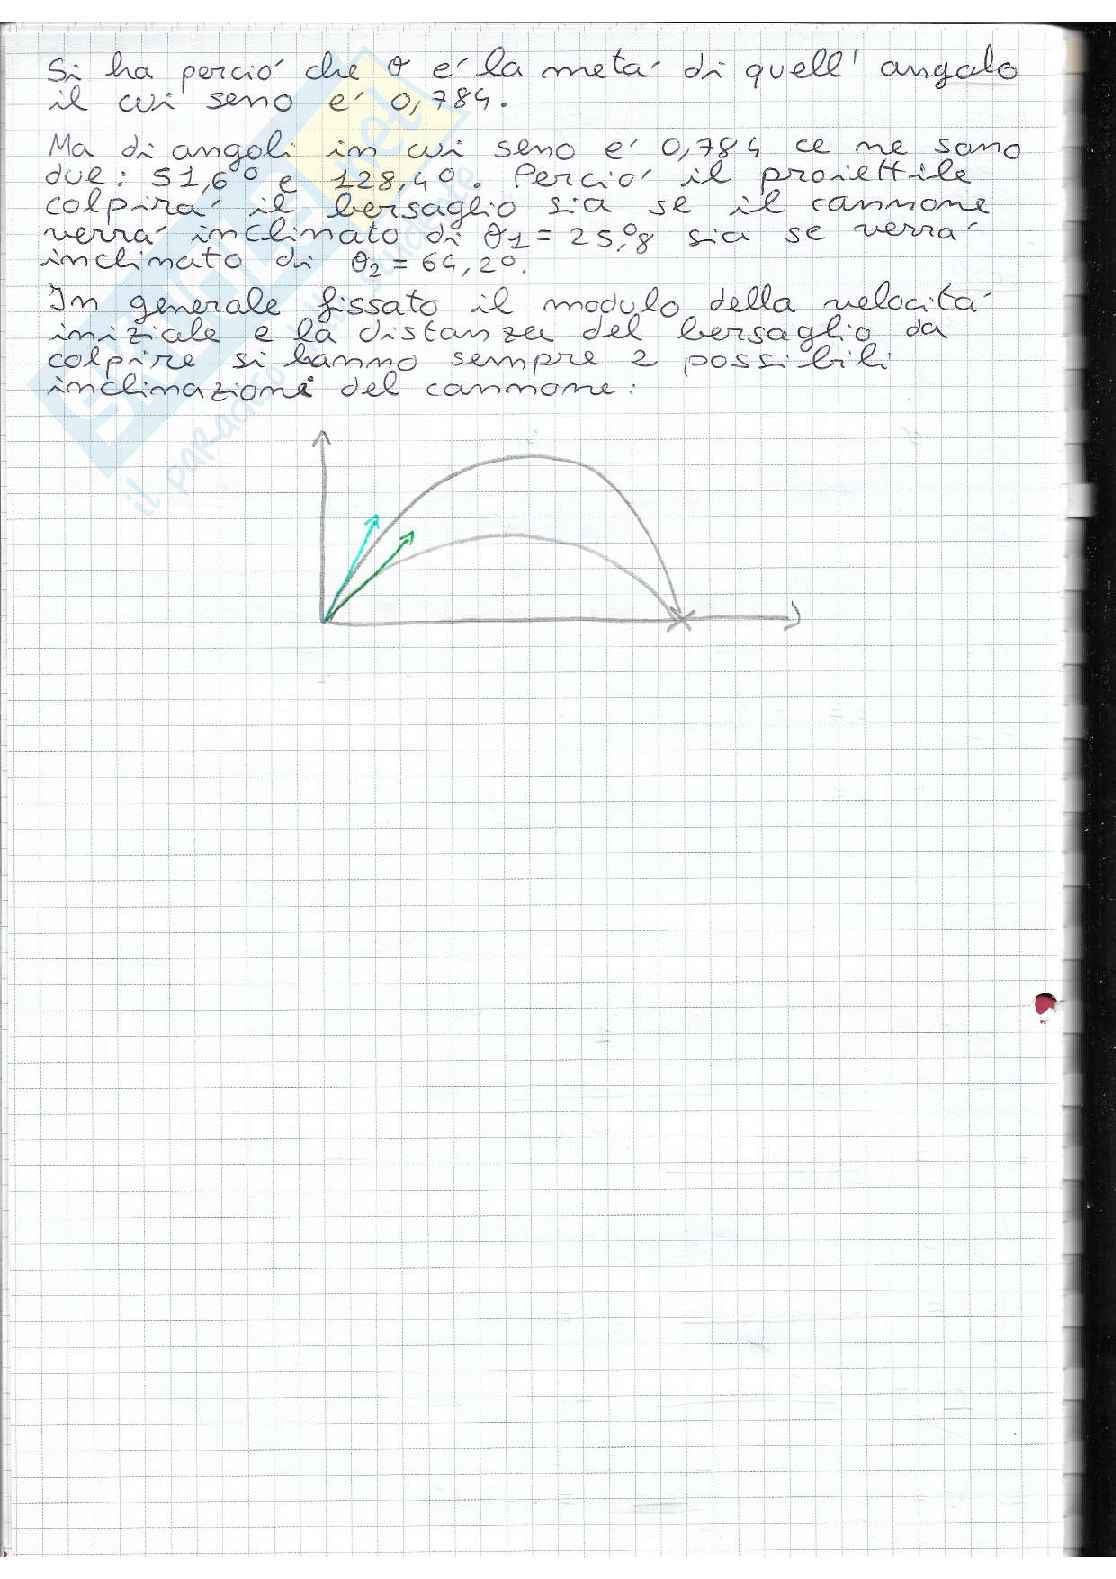 Si ha perció che θ e´ la metá di quell' angolo
il cui seno e´ 0,784.
Ma di angoli in cui seno e´ 0,784 ce ne sono
due: 51,6° e 128,4°. Perció il proiettile
colpirá il bersaglio sia se il cannone
verrá inclinato di θ1 = 25,°8 sia se verrá
inclinato di θ2 = 64,2°.
In generale fissato il modulo della velocitá
iniziale e la distanza del bersaglio da
colpire si hanno sempre 2 possibili
inclinazioni del cannone: